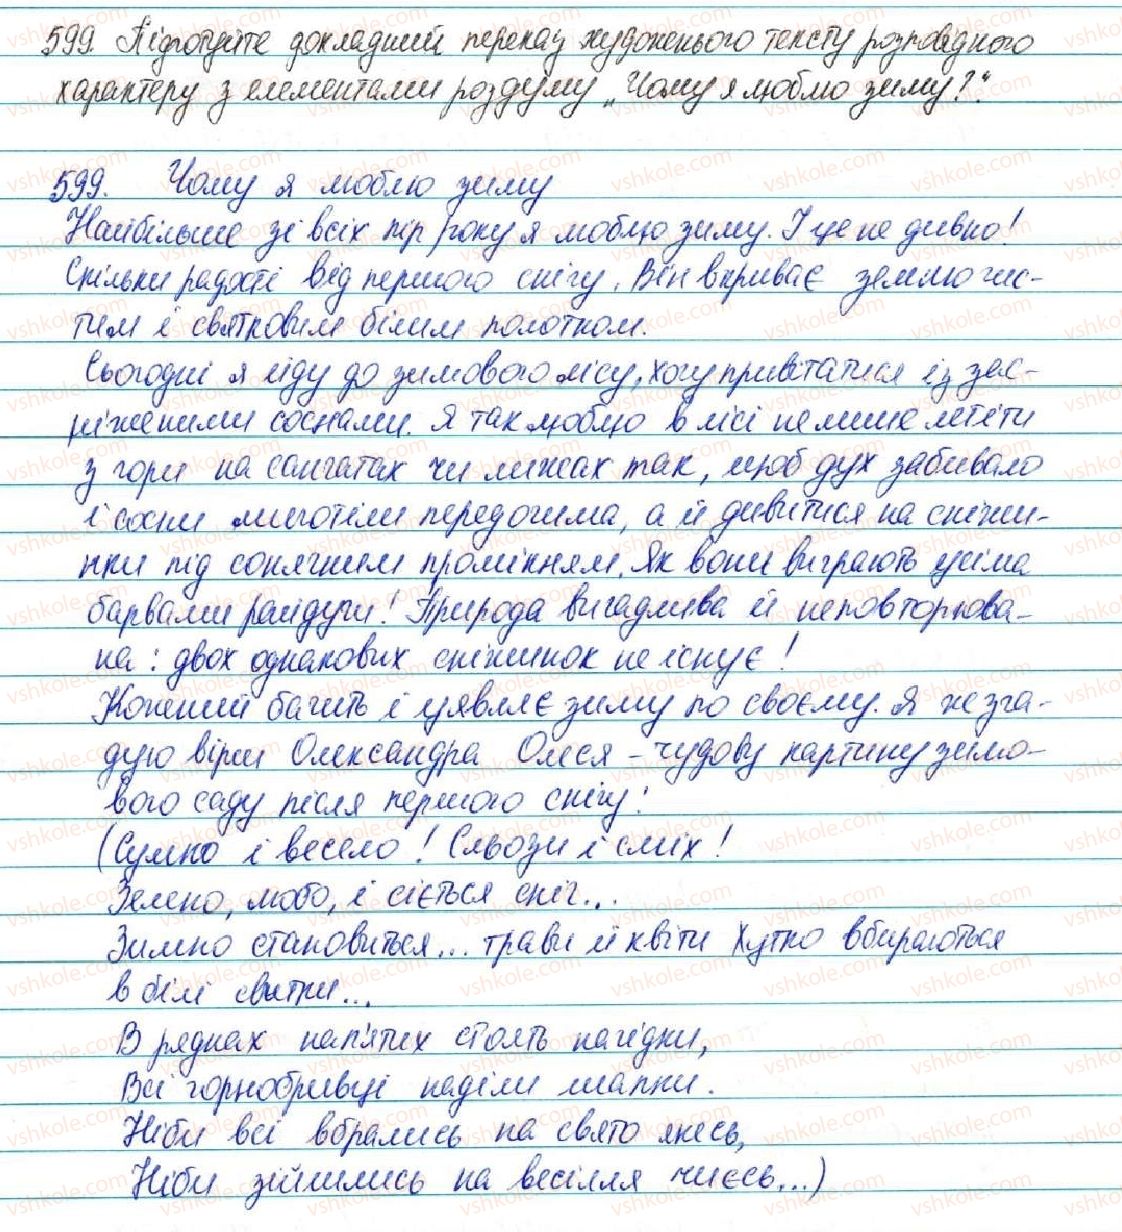 599. Підготуйте докладний переказ художнього тексту розповідного
характеру з елементами роздуму „Чому я люблю зиму?“.
599. Чому я люблю зиму
Найбільше зі всіх пір року я люблю зиму. І це не дивно!
Скільки радості від першого снігу. Він вкриває землю чис-
тим і святковим білим полотном.
Сьогодні я піду до зимового лісу, хочу привітатися із зас-
ніженими соснами. Я так люблю в лісі не лише летіти
з гори на санчатах чи лижах так, щоб дух забивало
і сосни миготіли перед очима, а й дивитися на сніжи-
нки під сонячним промінням. Як вони виграють усіма
барвами райдуги! Природа вигадлива й неповторюва-
на: двох однакових сніжинок не існує!
Кожний бачить і уявляє зиму по своєму. Я ж зга-
дую вірш Олександра Олеся – чудову картину зимо-
вого саду після першого снігу:
(Сумно і весело! Сльози і сміх!
Зелено, любо, і сіється сніг...
Зимно становиться... трави й квіти Хутко вбираються
в білі свитки...
В ряднах нап'ятих стоять нагідки,
Всі горнобривці наділи шапки.
Ніби всі вбрались на свято якесь,
Ніби зійшлись на весілля чиєсь...)